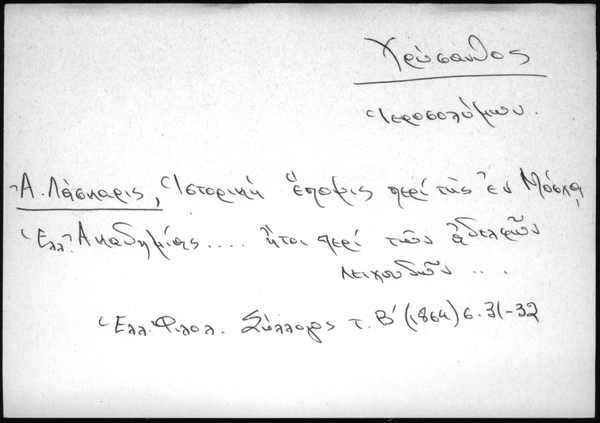 Χρύσανθος
Ἱεροσολύμων.
Ἀ. Λάσκαρις, Ἱστορική ἔποψις περί τῆς ἐν Μόσχᾳ
Ἑλλ. Ἀκαδημίας.... ἤτοι περί τῶν ἀδελφῶν
Λειχουδῶν ....
Ἑλλ. Φιλολ. Σύλλογος τ. Β' (1864) σ. 31-32